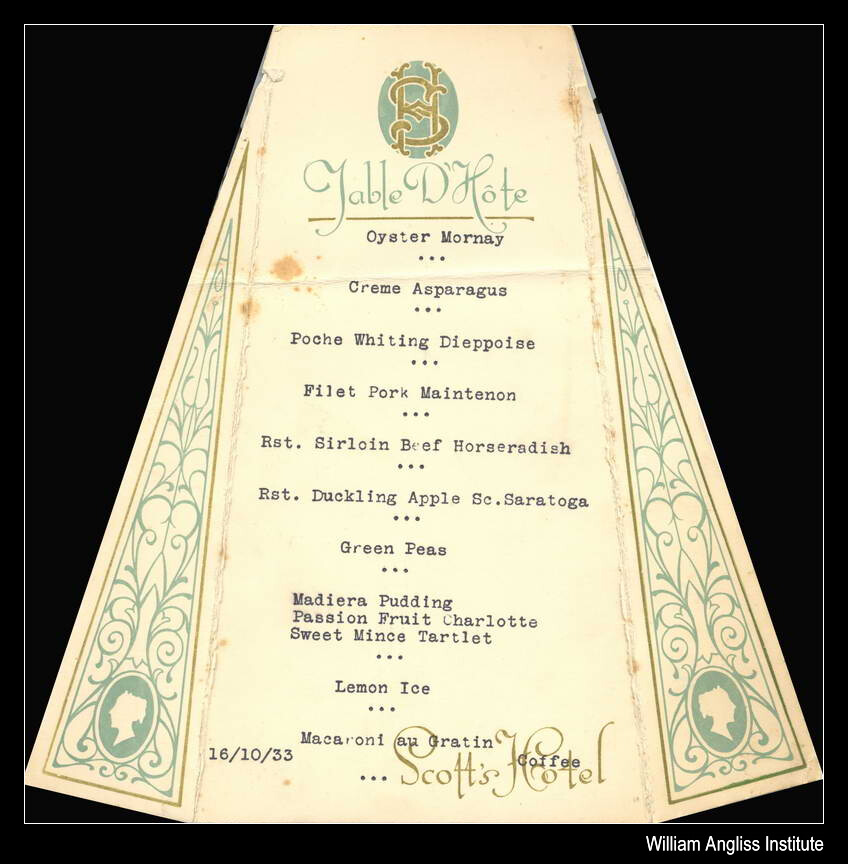 SH
Table D'Hôte
Oyster Mornay
...
Creme Asparagus
...
Poche Whiting Dieppoise
...
Filet Pork Maintenon
...
Rst. Sirloin Beef Horseradish
...
Rst. Duckling Apple Sc.Saratoga
...
Green Peas
...
Madiera Pudding
Passion Fruit Charlotte
Sweet Mince Tartlet
...
Lemon Ice
...
Macaroni au Gratin
16/10/33
Coffee
...
Scott's Hotel
William Angliss Institute